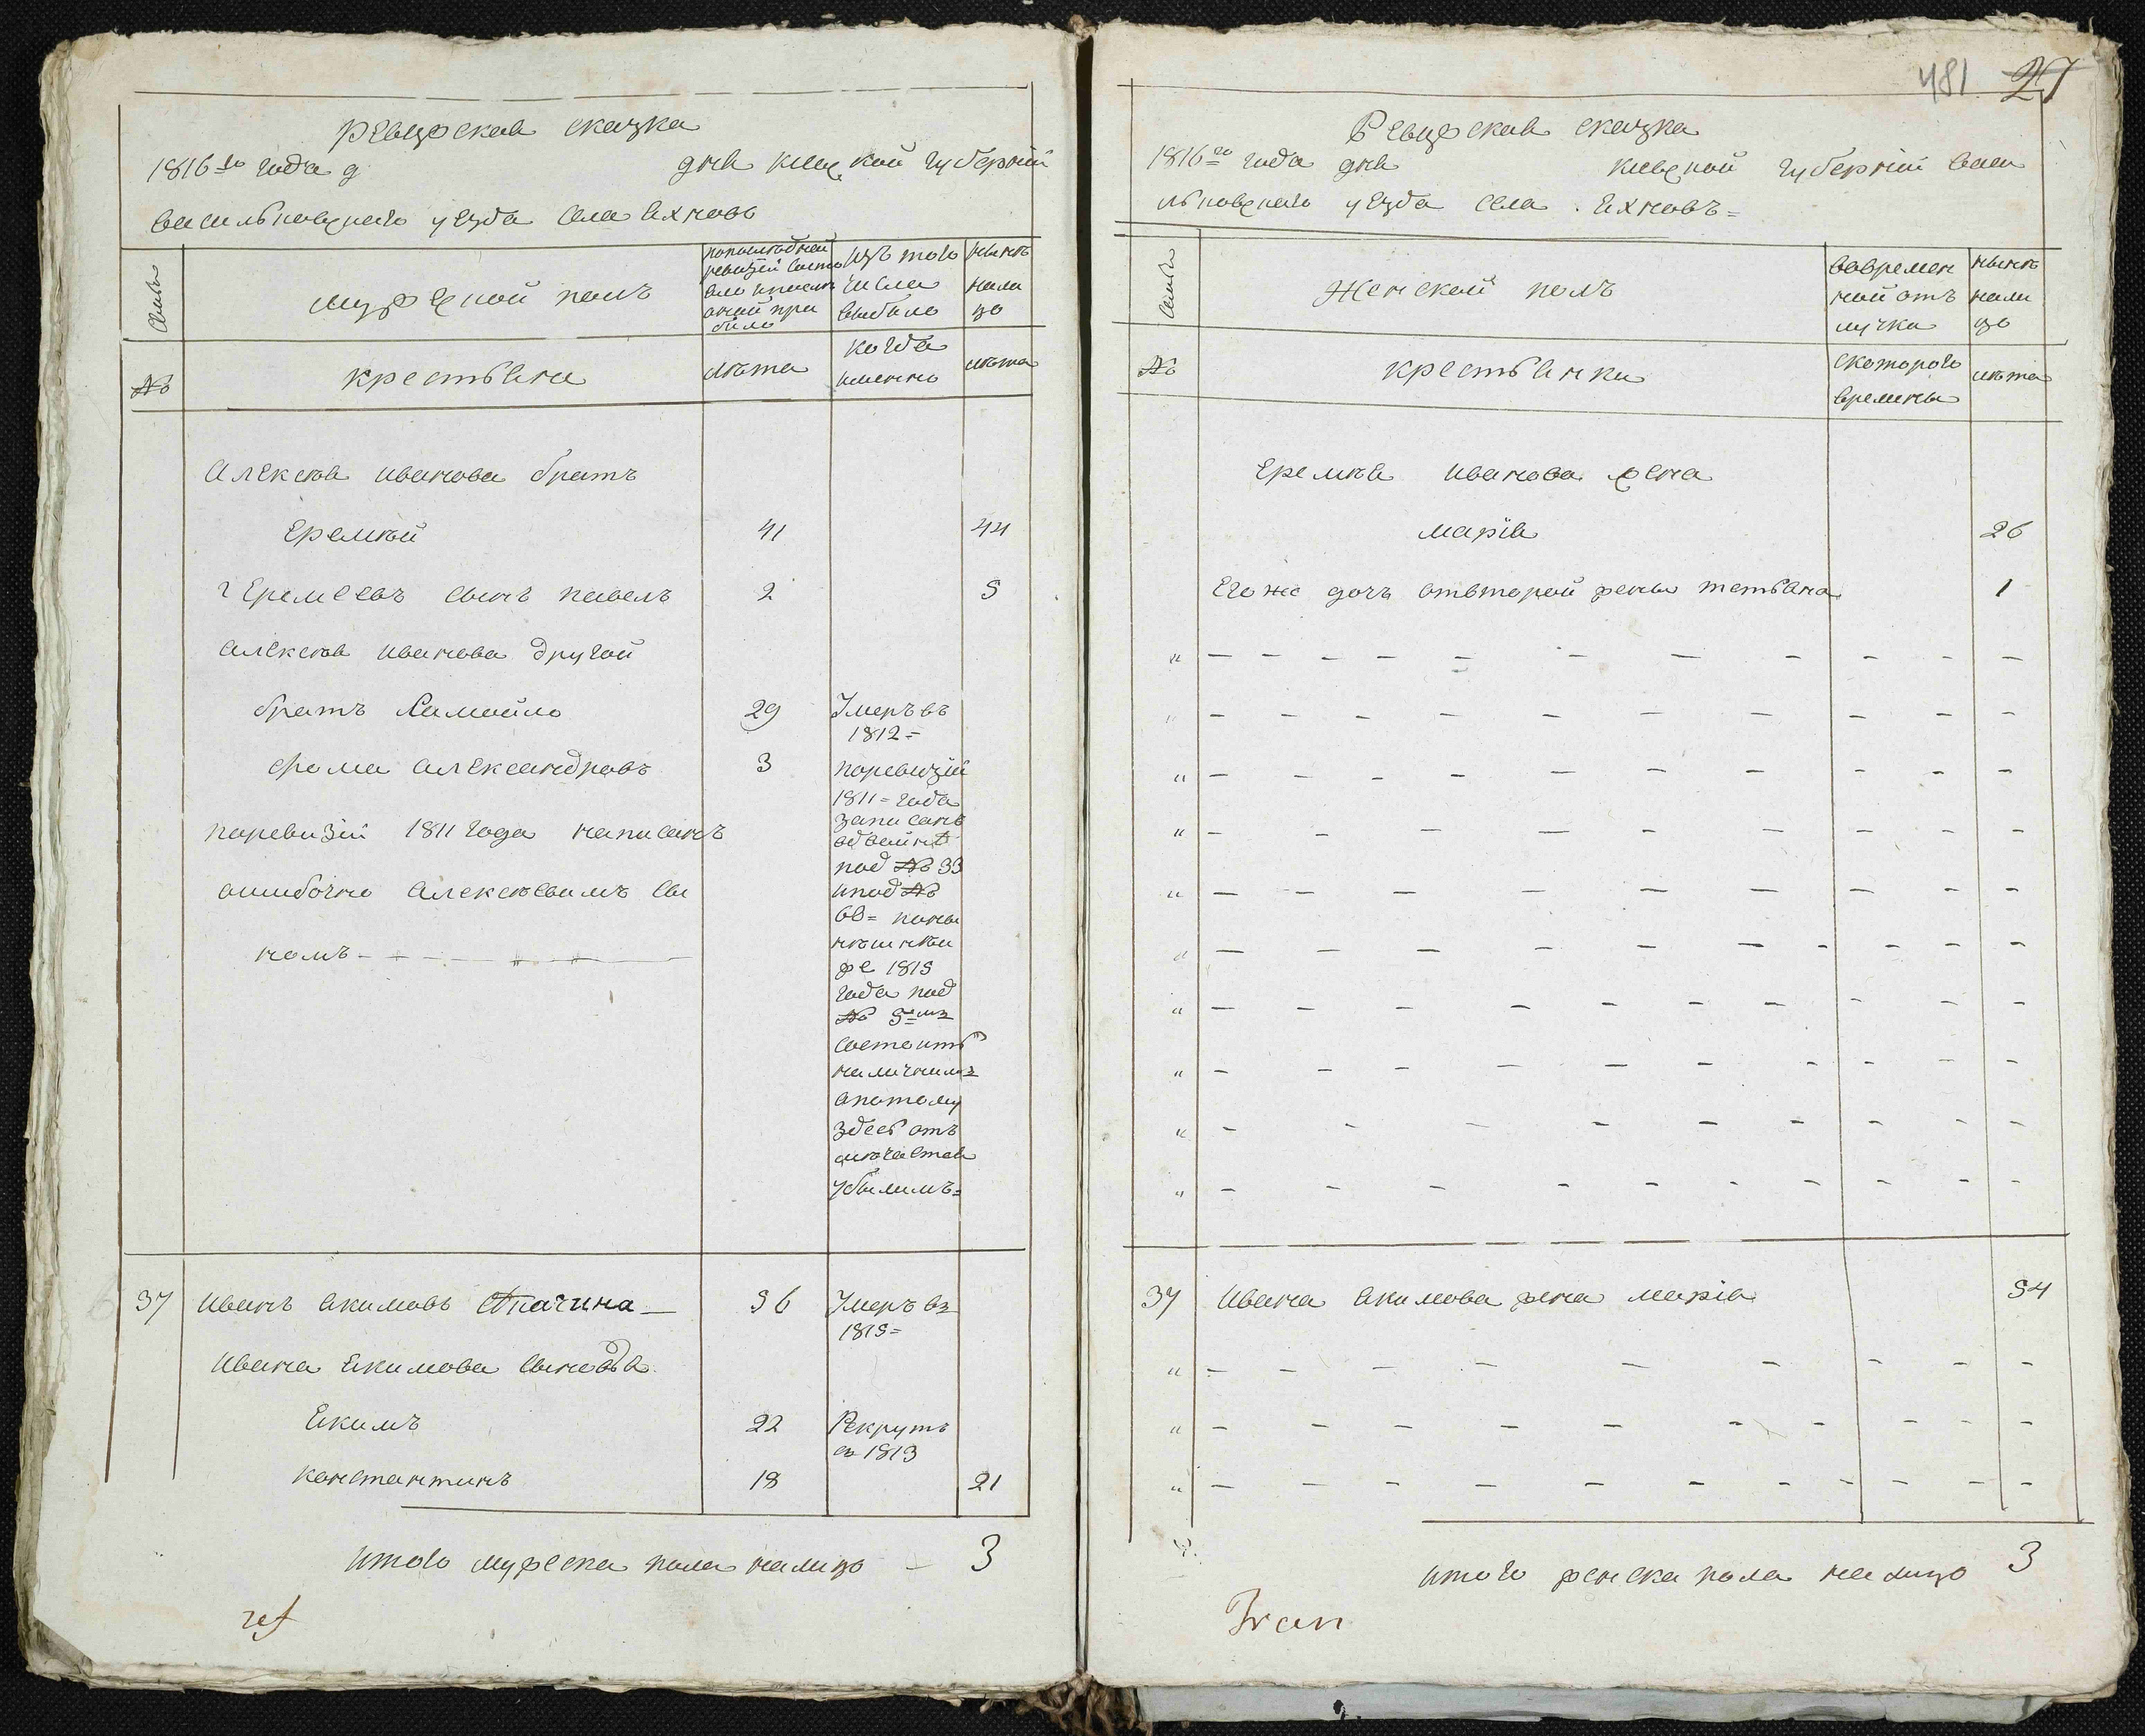 Ревизская сказка
1816го года д дня Киевской губерніи
васильковскаго уезда села Яхновъ
Семьи
мужеской полъ
изъ того числа выбыло
нынѣ налицо
№
крестьяне
лѣта
когда именно
лѣта
Алексѣя иванова братъ
Еремѣй 41 44
Еремеевъ сынъ павелъ 2 5
Алексѣя иванова другой
братъ Самойло 29 Умеръ въ
1812=
фома александровъ 3 поревизіи
1811= года
поревизіи 1811 года написанъ
записанъ
под № 33
ошибочно алексѣевымъ сы
ипод №
номъ
же 1815
года под
№ 5мъ
состоитъ
наличнымъ
апотому
здесь отъ
убылымъ=
37 иванъ Якимовъ Ткачина 56 Умеръ въ
1815=
ивана Якимова сыновья
Якимъ 22 Рекрутъ
въ 1813
константинъ 18 21
итого мужеска пола налицо 3
481 27
Ревизская сказка
1816го года дня Киевской губерніи васи
льковскаго уезда села Яхновъ=
Семьи
Женской полъ
вовремен
ной отъ
лучка
нынѣ
нали
цо
№
крестьянки
скоторого
времены
лѣта
Еремѣя иванова жена
марія 26
Его же дочь отвторой жены татьяна 1
37 ивана Якимова жена марія 54
итого женска пола налицо 3
Iwan